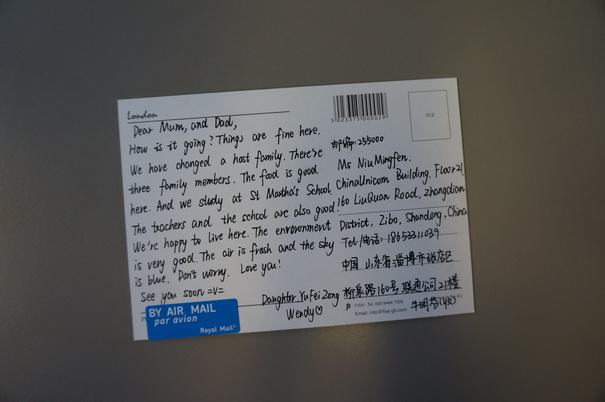 London
Dear Mum, and Dad,
How is it going? Things are fine here.
We have changed a host family. There're
three family members. The food is good
here. And we study at St Martha's School.
The teachers and the school are also good.
We're happy to live here. The environment
is very good. The air is fresh and the sky
is blue. Don't worry. Love you!
See you soon =v=
Daughter YuFei Zong
Wendy♡
BY AIR MAIL
par avion
Royal Mail
P12
邮编: 255000
Ms NiuMingfen.
ChinaUnicom Building, Floor21,
160 LiuQuan Road, zhangdian
District, Zibo, Shandong, China
Tel/电话: 18653311039
中国 山东省淄博市张店区
柳泉路160号 联通公司21楼